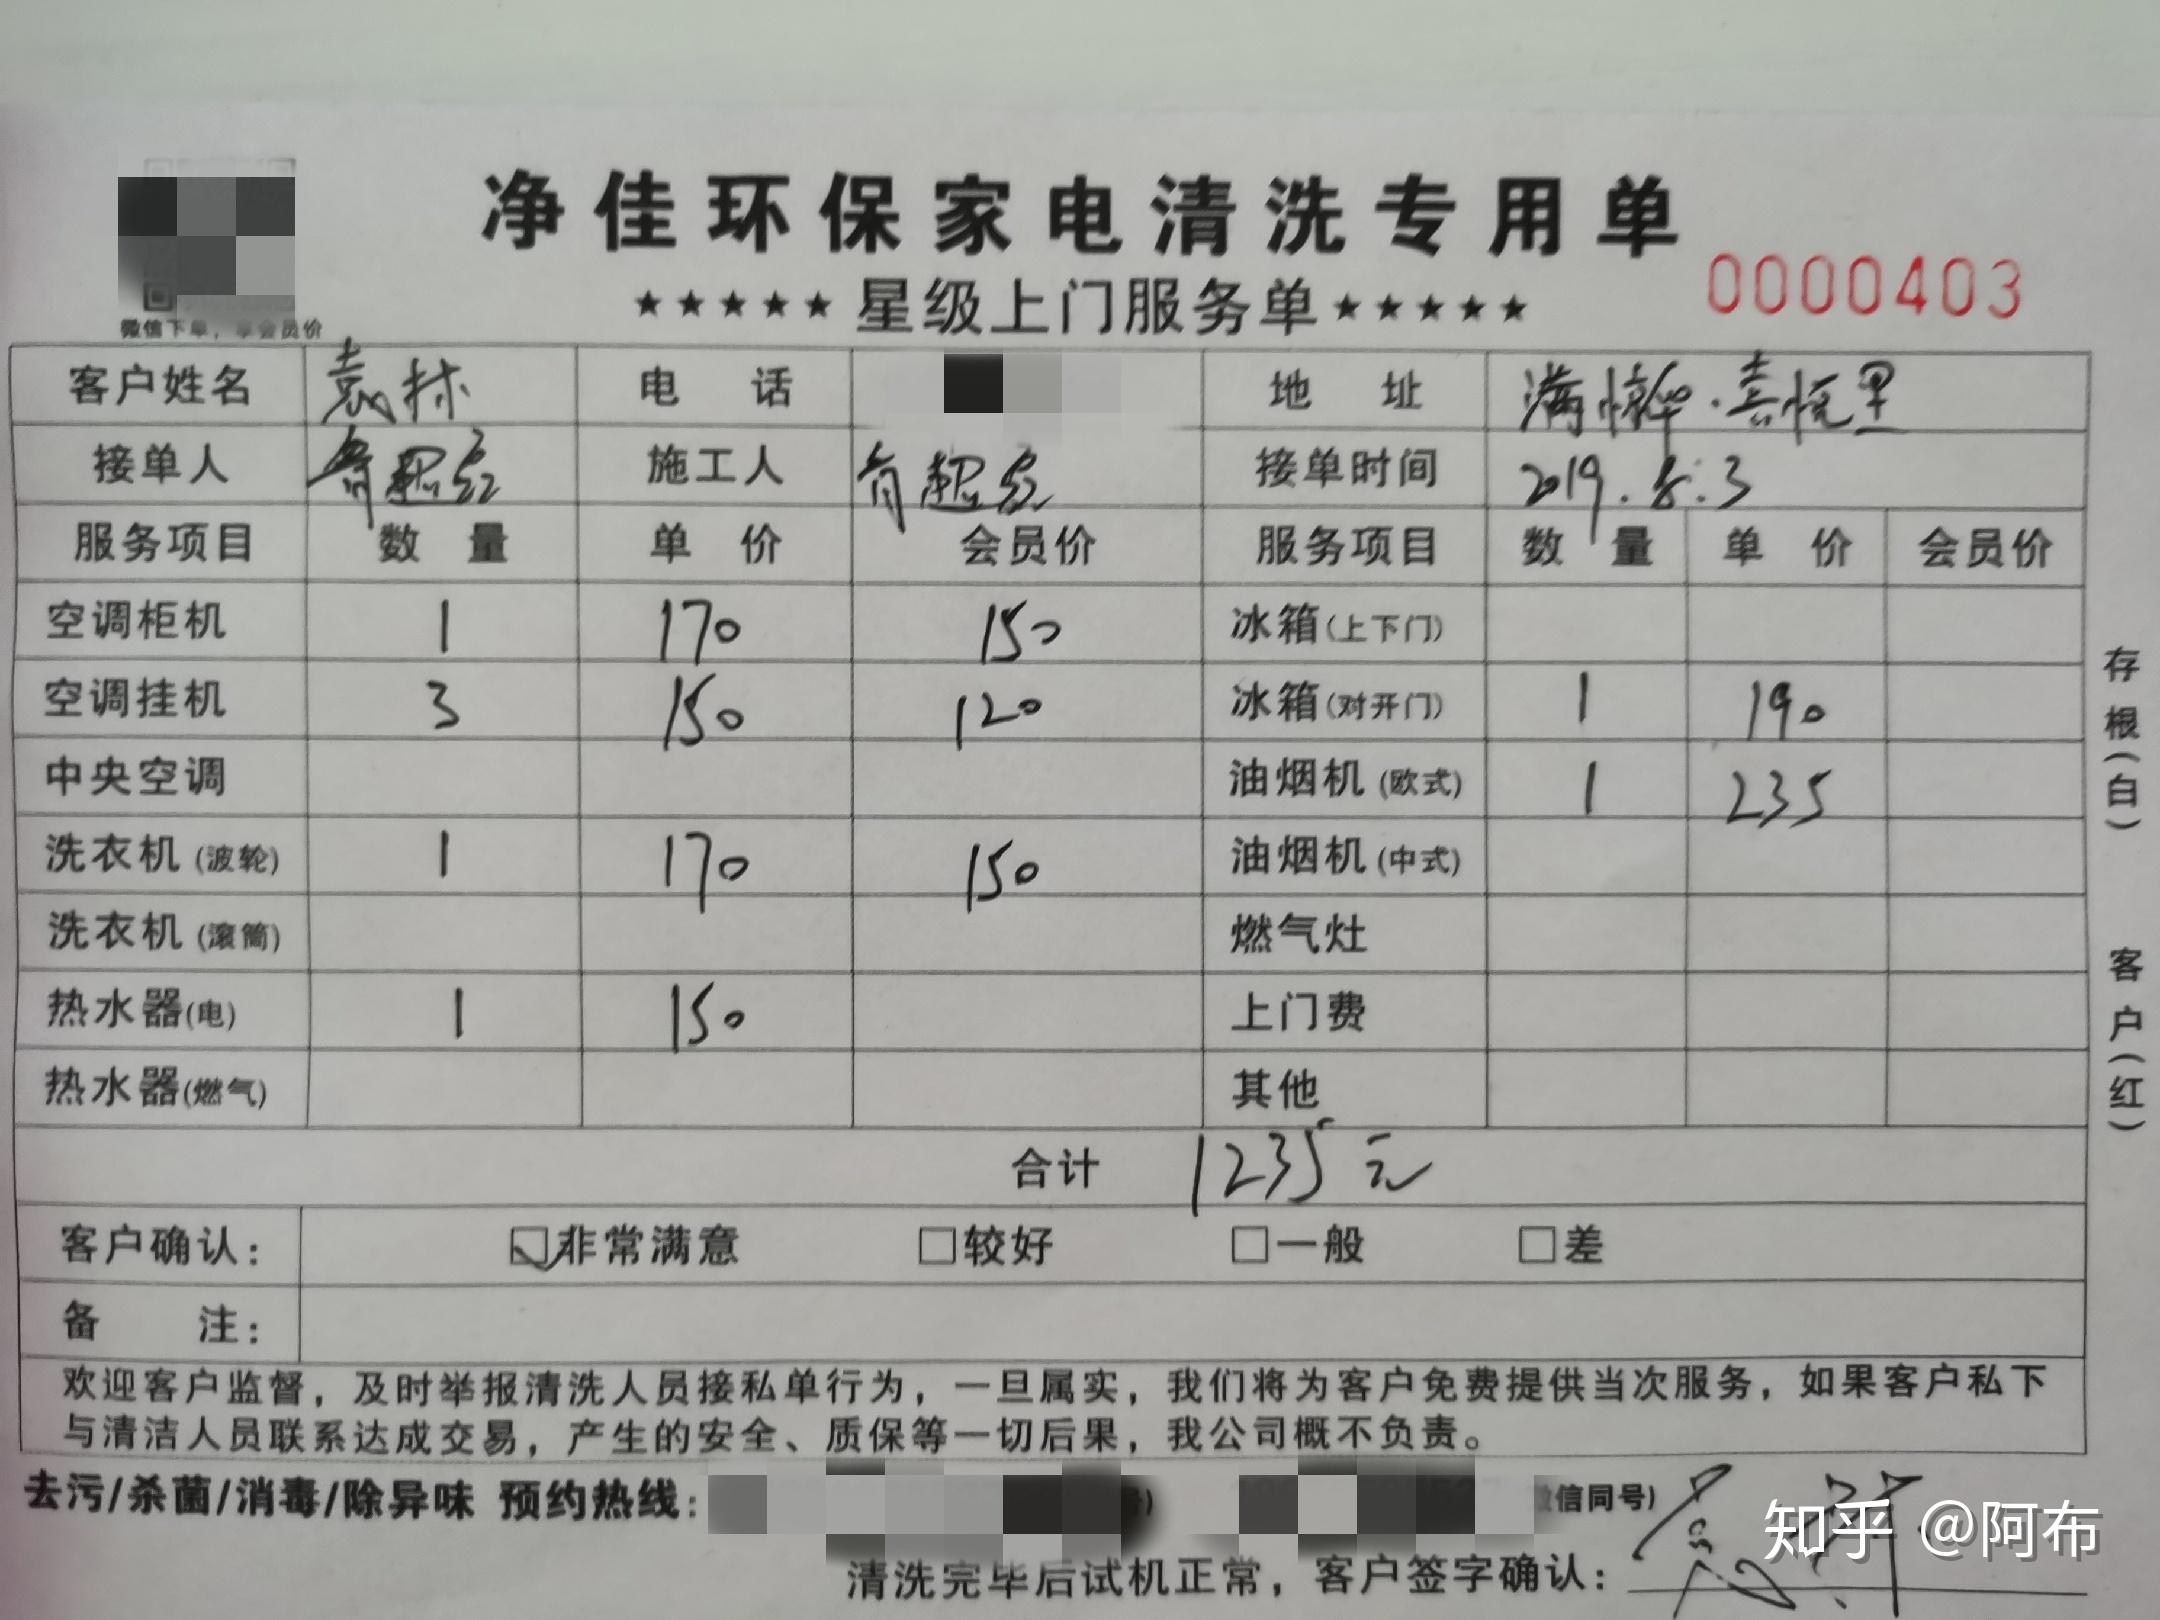 净佳环保家电清洗专用单
★★★★★星级上门服务单★★★★★ 0000403
微信下单，享会员价
客户姓名 袁林 电话 地址 满憬华·喜悦里
接单人 超 施工人 超 接单时间 2019.8.3
服务项目 数量 单价 会员价 服务项目 数量 单价 会员价
空调柜机 1 170 150 冰箱(上下门)
空调挂机 3 150 120 冰箱(对开门) 1 190
中央空调 油烟机(欧式) 1 235
洗衣机(波轮) 1 170 150 油烟机(中式)
洗衣机(滚筒) 燃气灶
热水器(电) 1 150 上门费
热水器(燃气) 其他
合计 1235元
客户确认： ☑非常满意 □较好 □一般 □差
备注：
欢迎客户监督，及时举报清洗人员接私单行为，一旦属实，我们将为客户免费提供当次服务，如果客户私下
与清洁人员联系达成交易，产生的安全、质保等一切后果，我公司概不负责。
去污/杀菌/消毒/除异味 预约热线： 信同号)
清洗完毕后试机正常，客户签字确认：
存根(白) 客户(红)
知乎 @阿布